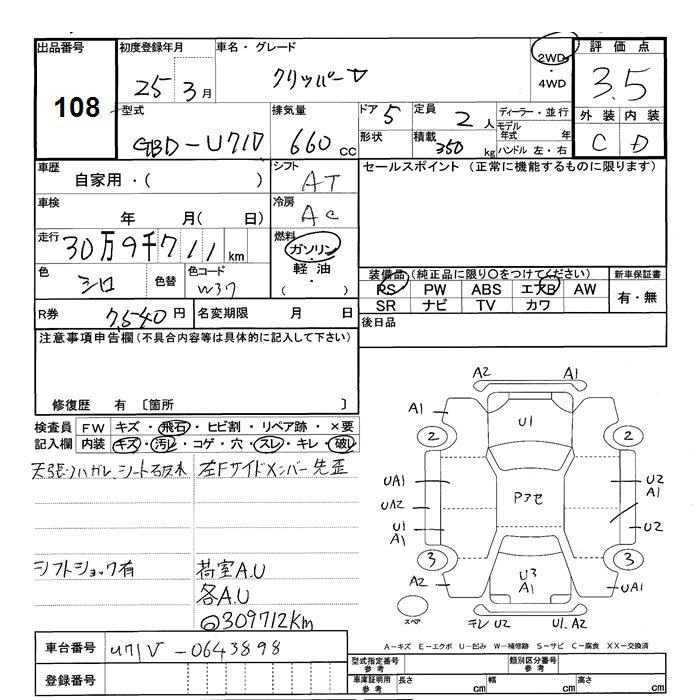 出品番号
108
初度登録年月
25年 3月
車名・グレード
クリッパー
2WD
・
4WD
評価点
3.5
外装 内装
C D
型式
GBD-U71V
排気量
660 cc
ドア 5
形状
定員 2 人
積載 350 kg
ディーラー・並行
モデル年式 年
ハンドル 左・右
車歴
自家用・( )
シフト
AT
セールスポイント (正常に機能するものに限ります)
車検
年 月( 日)
冷房
AC
走行
30万9千711 km
燃料
ガソリン
・
軽油
・
( )
色
シロ
色替
色コード
W37
装備品(純正品に限り○をつけてください)
PS PW ABS エアB AW
SR ナビ TV カワ
新車保証書
有・無
R券 7,540円
名変期限 月 日
後日品
注意事項申告欄(不具合内容等は具体的に記入して下さい)
修復歴 有 〔箇所 〕
検査員 FW キズ・飛石・ヒビ割・リペア跡・×要
記入欄 内装 キズ・汚レ・コゲ・穴・スレ・キレ・破レ
天張ハガレ、シート
左Fサイドメンバー先歪
シフトショック有
荷室A.U
各A.U
◎309712Km
A2 A1
A1
U1
2 2
UA1 U2
A1
Pアセ
UA2
U1 U2
A1
3 3
A2 U3 UA1
A1
スペア
キレ U2 U1.A2
A-キズ E-エクボ U-凹み W-補修跡 S-サビ C-腐食 XX-交換済
車台番号 U71V-0643898
登録番号
型式指定番号 参考
類別区分番号 参考
車庫証明用 参考 長さ cm 幅 cm 高さ cm